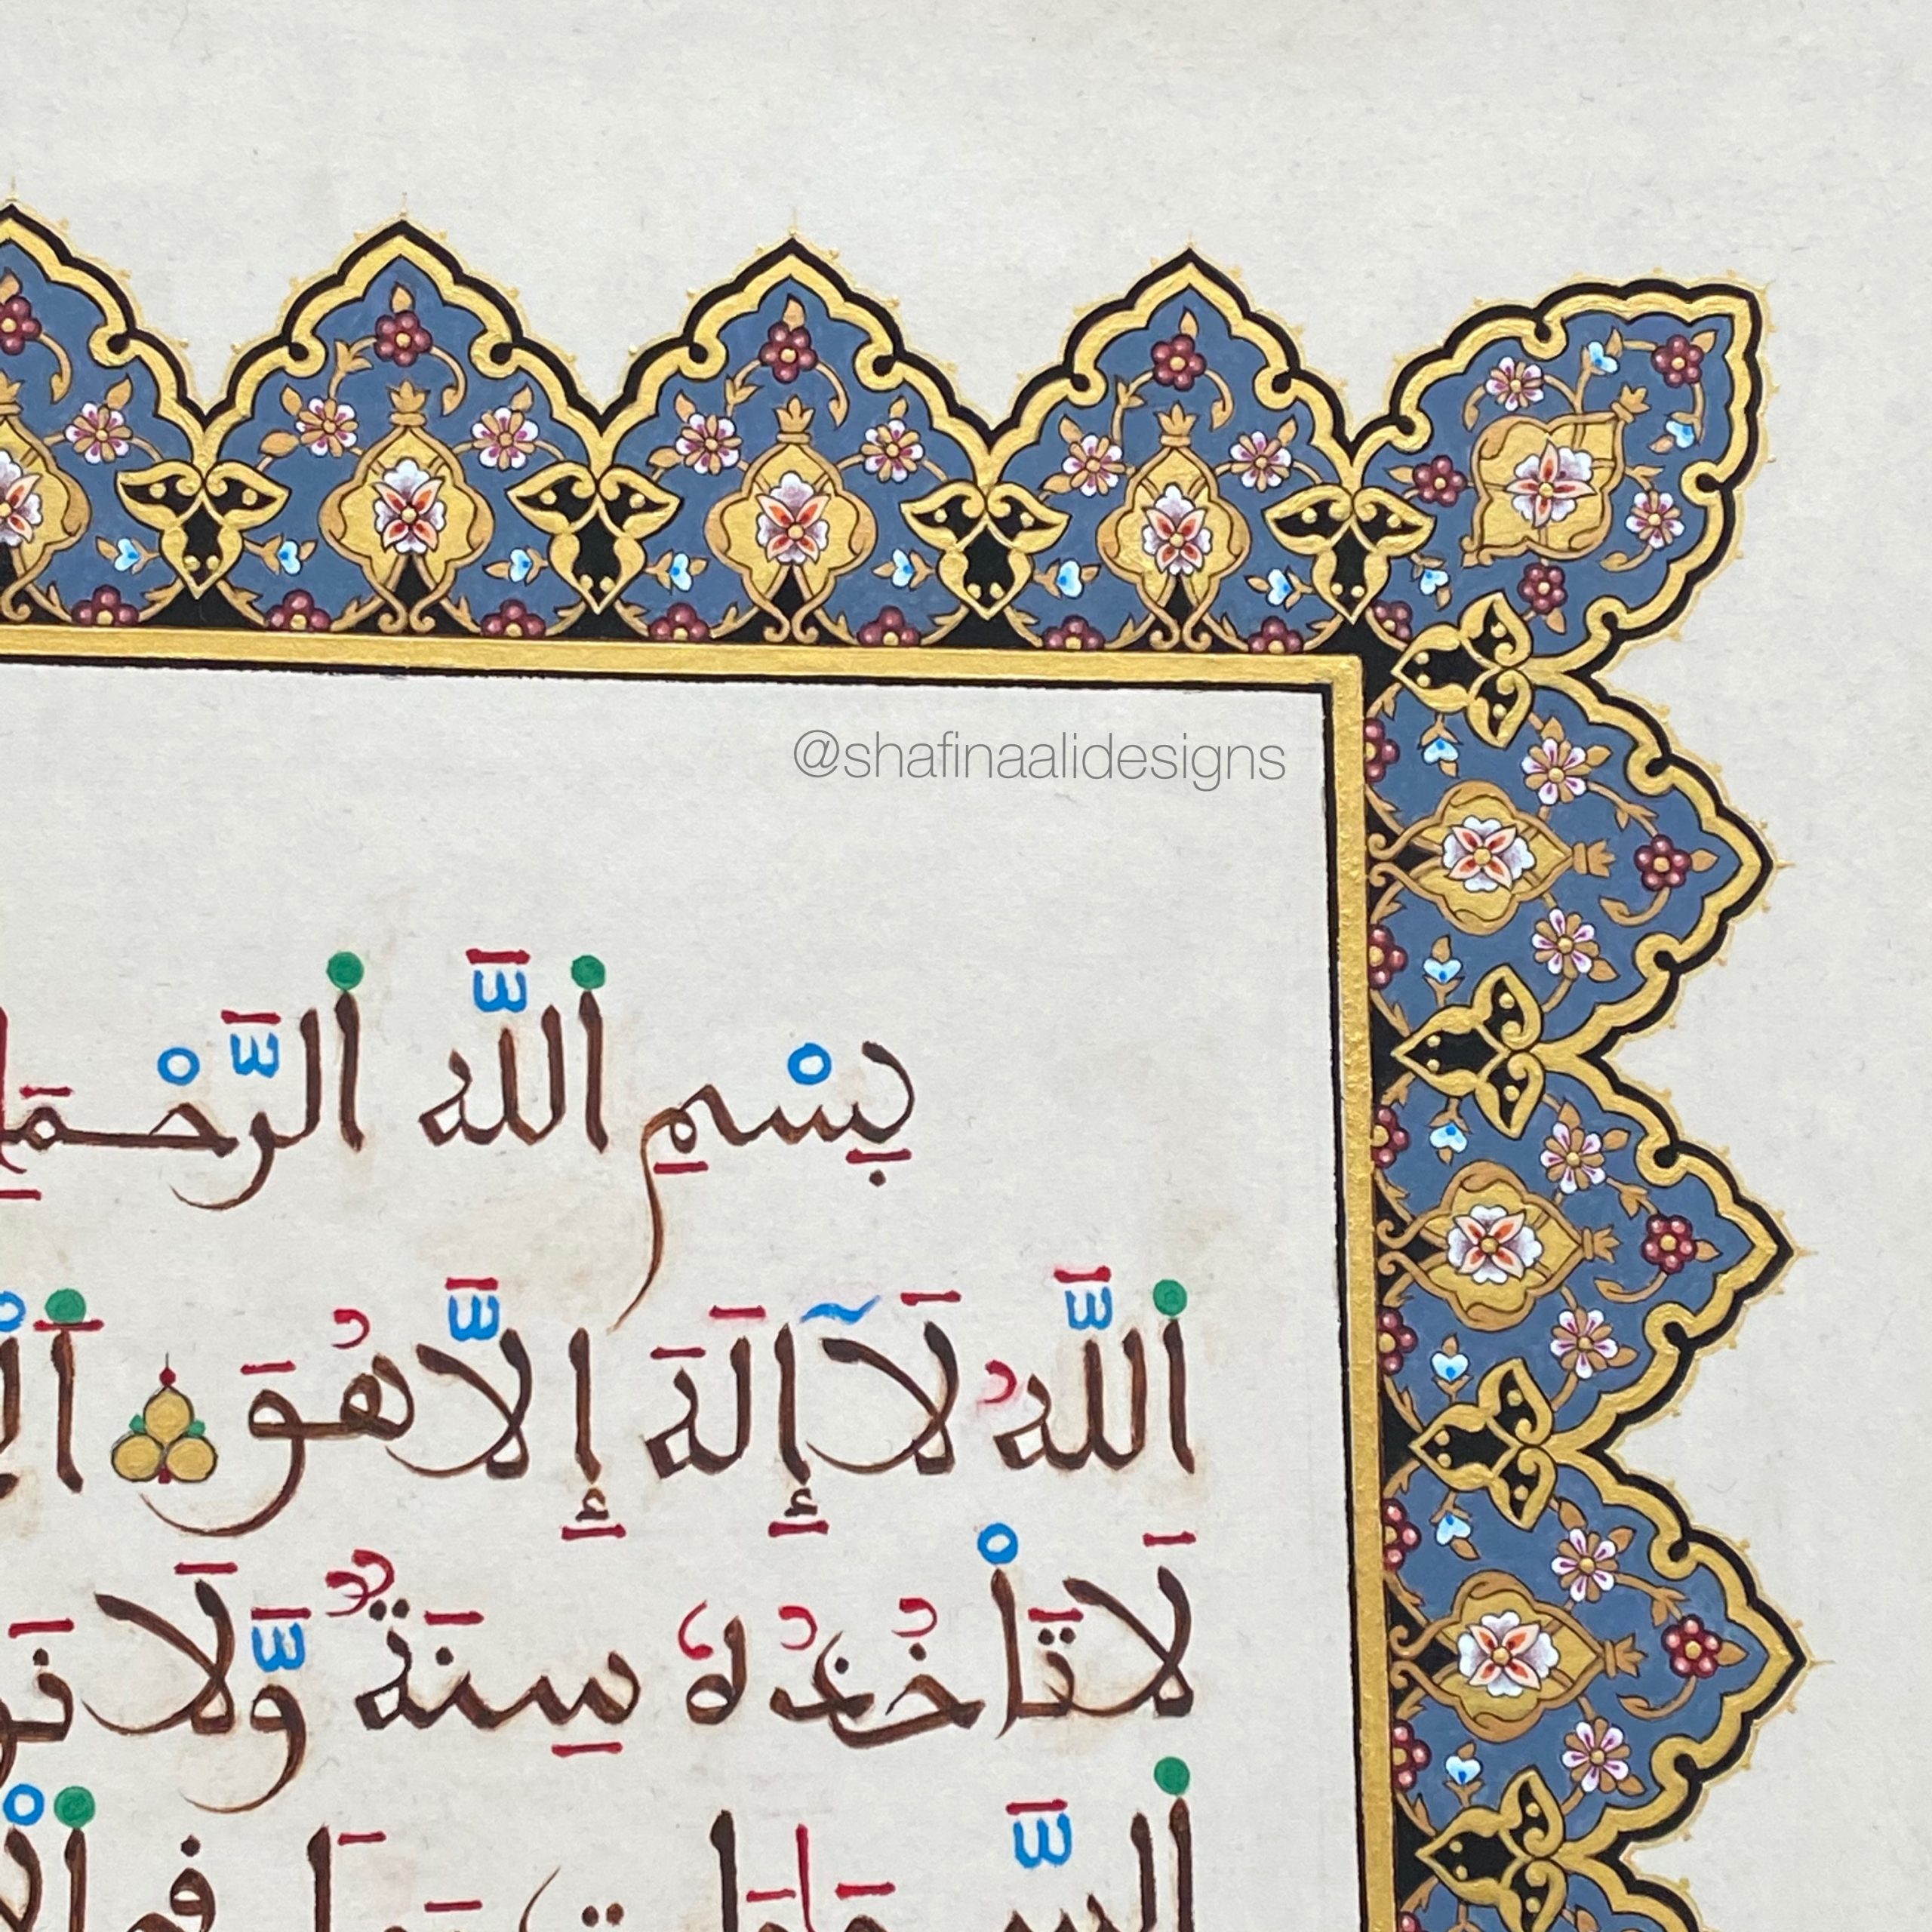 @shafinaalidesigns
بِسْمِ اَ۬للَّهِ اِ۬لرَّحْمَٰ
اَ۬للَّهُ لَآ إِلَٰهَ إِلَّا هُوَ
لَا تَأْخُذُهُۥ سِنَةٌ وَّلَا
اَ۬لسَّمَٰوَٰتِ